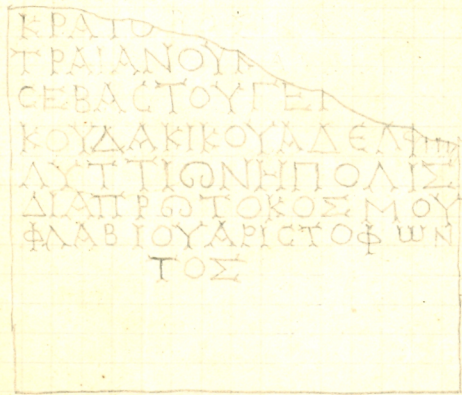 ΚΡΑΤΟ
ΤΡΑΙΑΝΟΥ
ϹΕΒΑϹΤΟΥΓΕΙ
ΚΟΥΔΑΚΙΚΟΥΑΔΕΛΦΗ
ΛΥΤΤΙΩΝΗΠΟΛΙΣ
ΔΙΑΠΡΩΤΟΚΟΣΜΟΥ
ΦΛΑΒΙΟΥΑΡΙϹΤΟΦΩΝ
ΤΟΣ